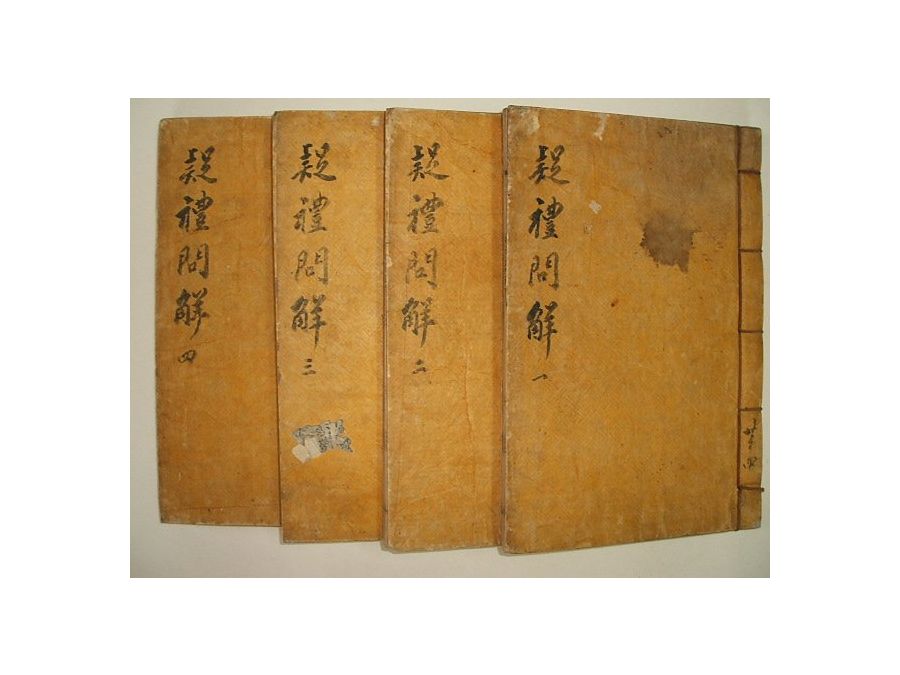 疑禮問解 一
共四
疑禮問解 二
疑禮問解 三
疑禮問解 四